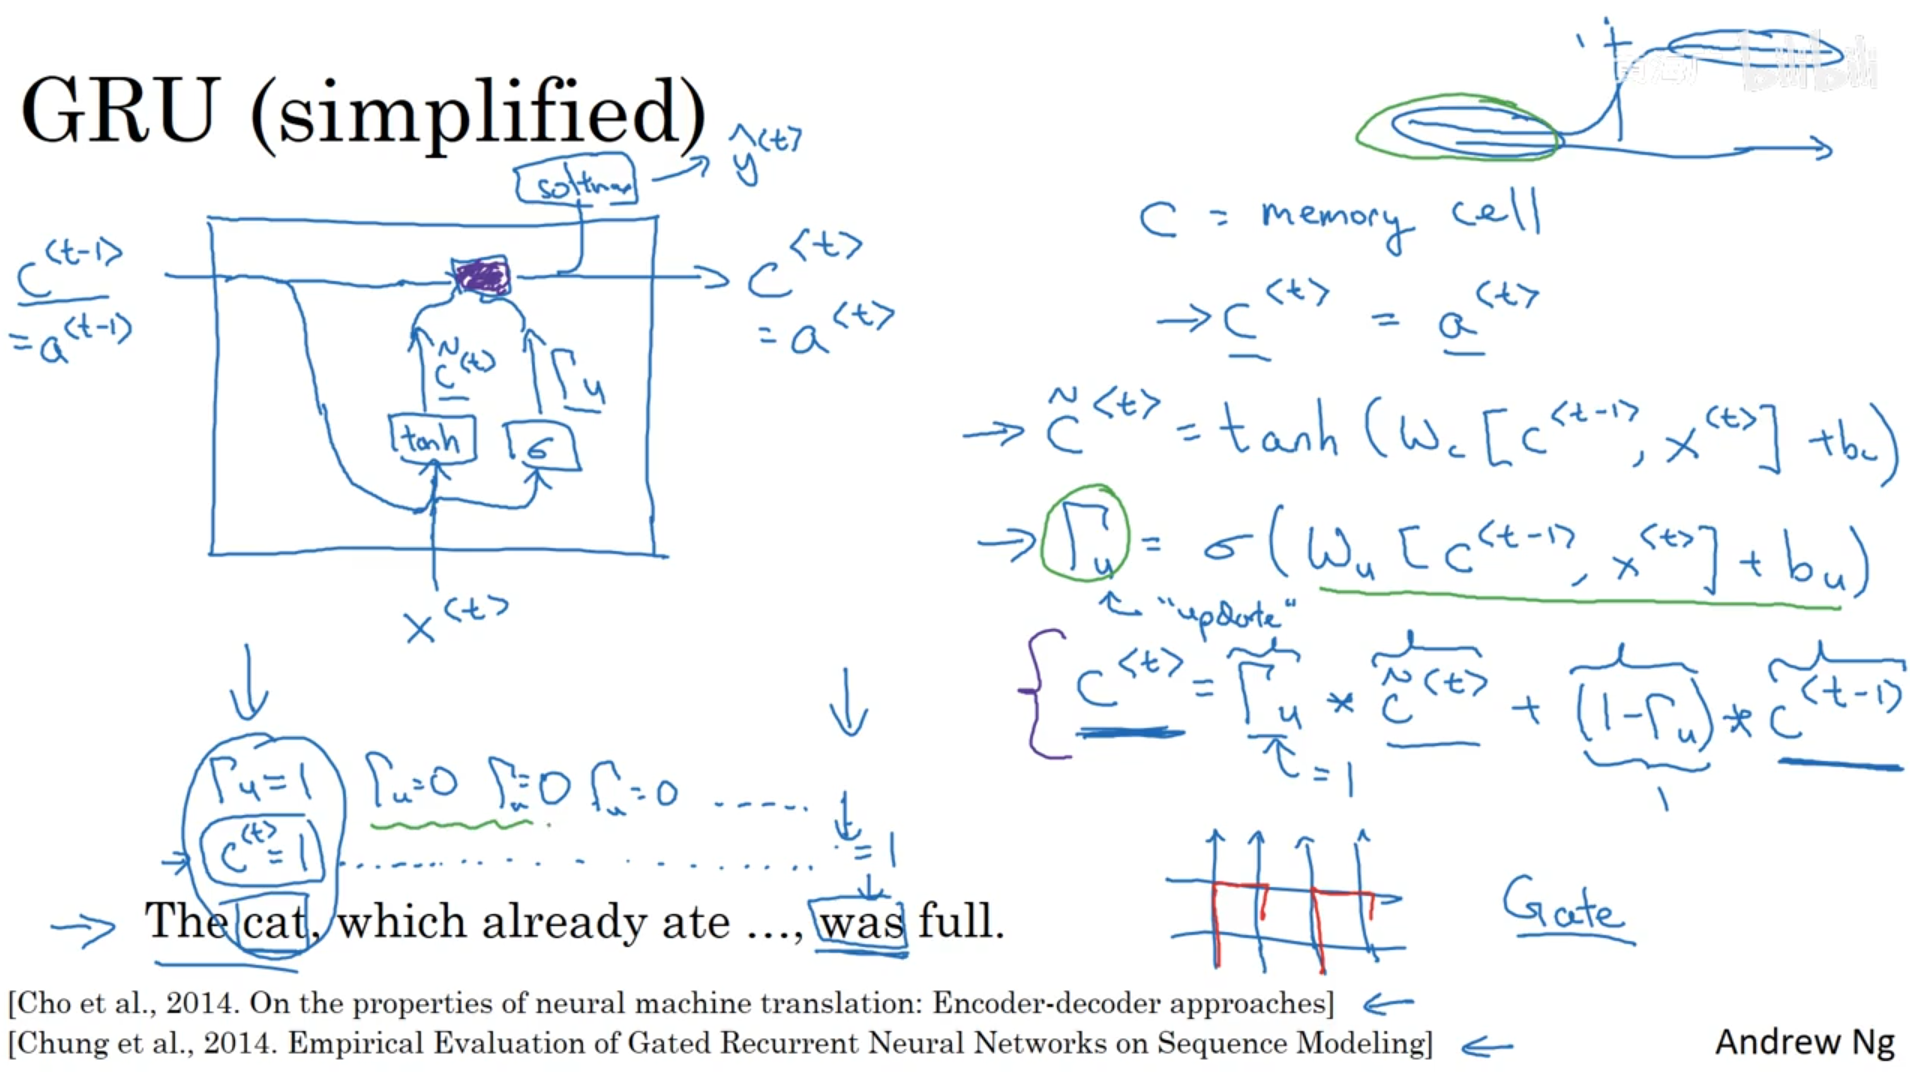 GRU (simplified)
softmax → ŷ^<t>
c^<t-1>
= a^<t-1>
c^<t>
= a^<t>
c̃^<t>
Γu
tanh
σ
x^<t>
1
bilibili
C = memory cell
→ c^<t> = a^<t>
→ c̃^<t> = tanh (Wc [c^<t-1>, x^<t>] + bc)
→ Γu = σ (Wu [c^<t-1>, x^<t>] + bu)
"update"
c^<t> = Γu * c̃^<t> + (1-Γu) * c^<t-1>
= 1
1
Γu=1 Γu=0 Γu=0 Γu=0 .....
c^<t>=1 ........ = 1
→ The cat, which already ate …, was full.
Gate
[Cho et al., 2014. On the properties of neural machine translation: Encoder-decoder approaches] ←
[Chung et al., 2014. Empirical Evaluation of Gated Recurrent Neural Networks on Sequence Modeling] ←
Andrew Ng